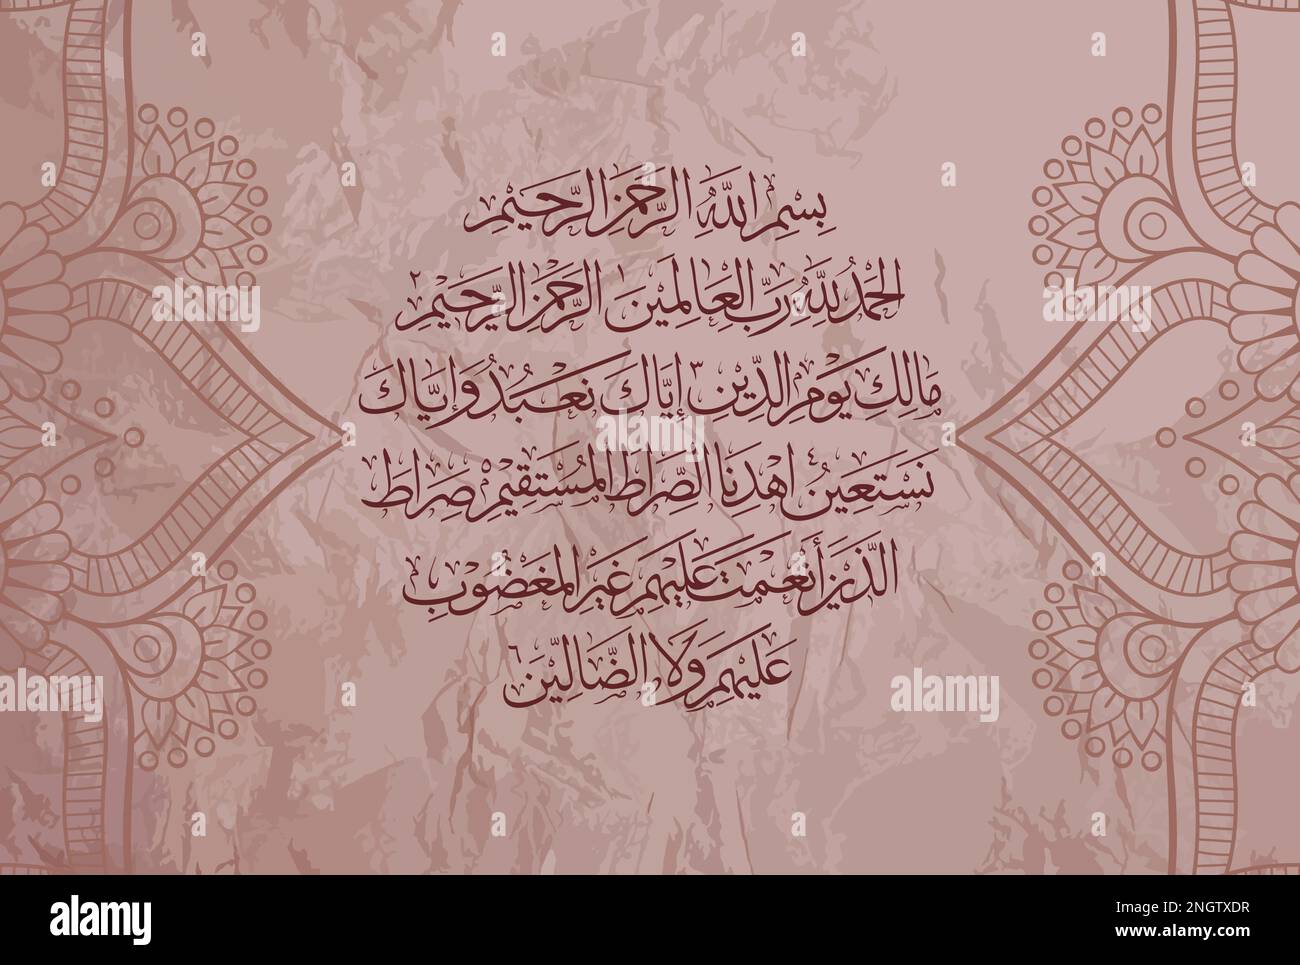 بِسْمِ اللَّهِ الرَّحْمَنِ الرَّحِيمِ
الْحَمْدُ لِلَّهِ رَبِّ الْعَالَمِينَ ١ الرَّحْمَنِ الرَّحِيمِ ٢
مَالِكِ يَوْمِ الدِّينِ ٣ إِيَّاكَ نَعْبُدُ وَإِيَّاكَ
نَسْتَعِينُ ٤ اهْدِنَا الصِّرَاطَ الْمُسْتَقِيمَ ٥ صِرَاطَ
الَّذِينَ أَنْعَمْتَ عَلَيْهِمْ غَيْرِ الْمَغْضُوبِ
عَلَيْهِمْ وَلَا الضَّالِّينَ ٦
alamy
Image ID: 2NGTXDR
www.alamy.com